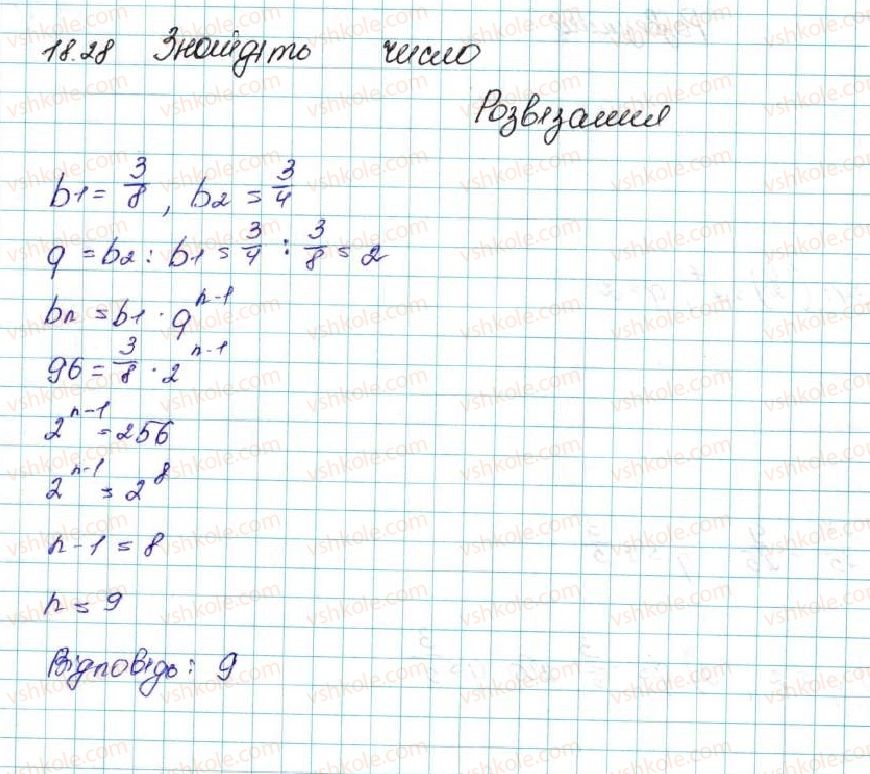 18.28 Знайдіть число
Розвязання
b1 = 3/8, b2 = 3/4
q = b2 : b1 = 3/4 : 3/8 = 2
bn = b1 · q^n-1
96 = 3/8 · 2^n-1
2^n-1 = 256
2^n-1 = 2^8
n-1 = 8
n = 9
Відповідь: 9